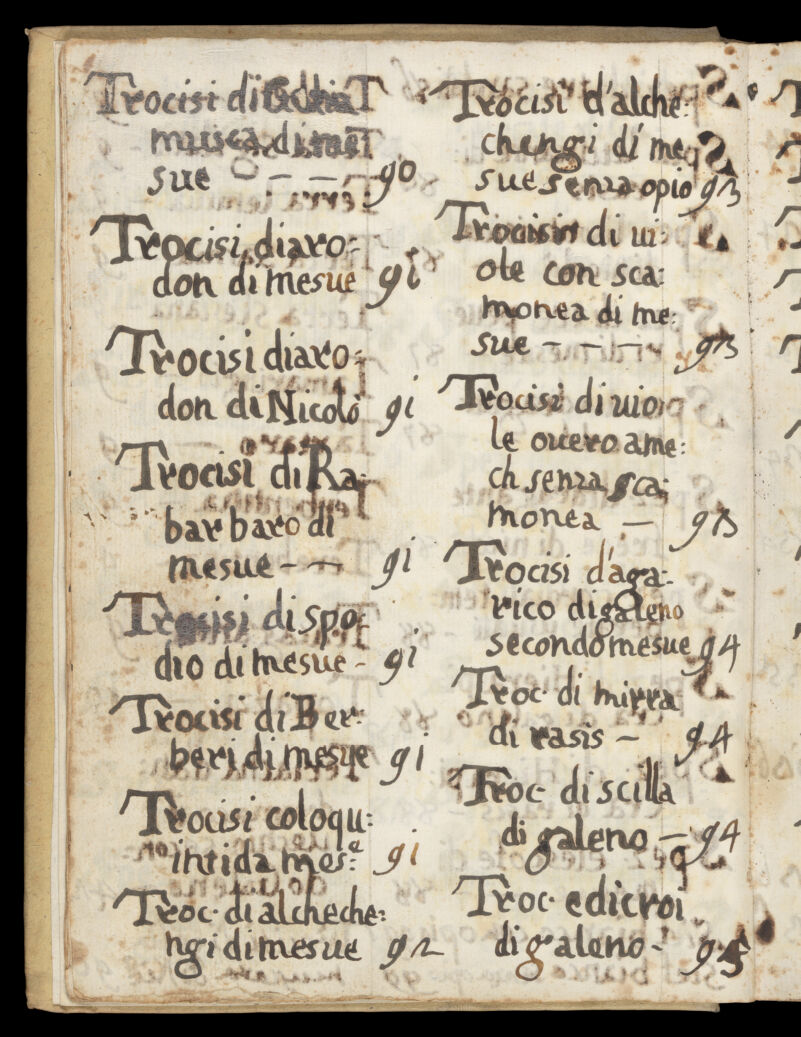 Trocisi di Gallia
musca di me
sue - - - 90
Trocisi diaro:
don di mesue 91
Trocisi diaro:
don di Nicolò 91
Trocisi di Ra:
barbaro di
mesue - - 91
Trocisi di spo:
dio di mesue - 91
Trocisi di Ber:
beri di mesue 91
Trocisi coloqu:
intida mes.e 91
Troc. di alcheche:
ngi di mesue 92
Trocisi d'alche:
chengi di me
sue senza opio 93
Trocisi di ui:
ole con sca:
monea di me:
sue - - - 93
Trocisi di uio
le ouero ame:
ch senza sca:
monea - 93
Trocisi d'aga:
rico di galeno
secondo mesue 94
Troc. di mirra
di rasis - 94
Troc. di scilla
di galeno - 94
Troc. edicroi
di galeno - 95